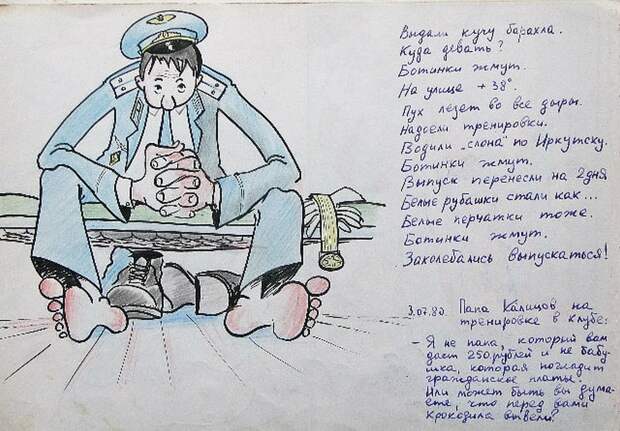 Выдали кучу барахла.
Куда девать?
Ботинки жмут.
На улице +38°.
Пух лезет во все дыры.
Надоели тренировки.
Водили „слона" по Иркутску.
Ботинки жмут.
Выпуск перенесли на 2 дня
Белые рубашки стали как...
Белые перчатки тоже.
Ботинки жмут.
Заколебались выпускаться!
3.07.80. Папа Калицов на
тренировке в клубе:
- Я не папа, который вам
даст 250 рублей и не бабу-
шка, которая погладит
гражданское платье.
Или может быть вы дума-
ете, что перед вами
крокодила вывели?